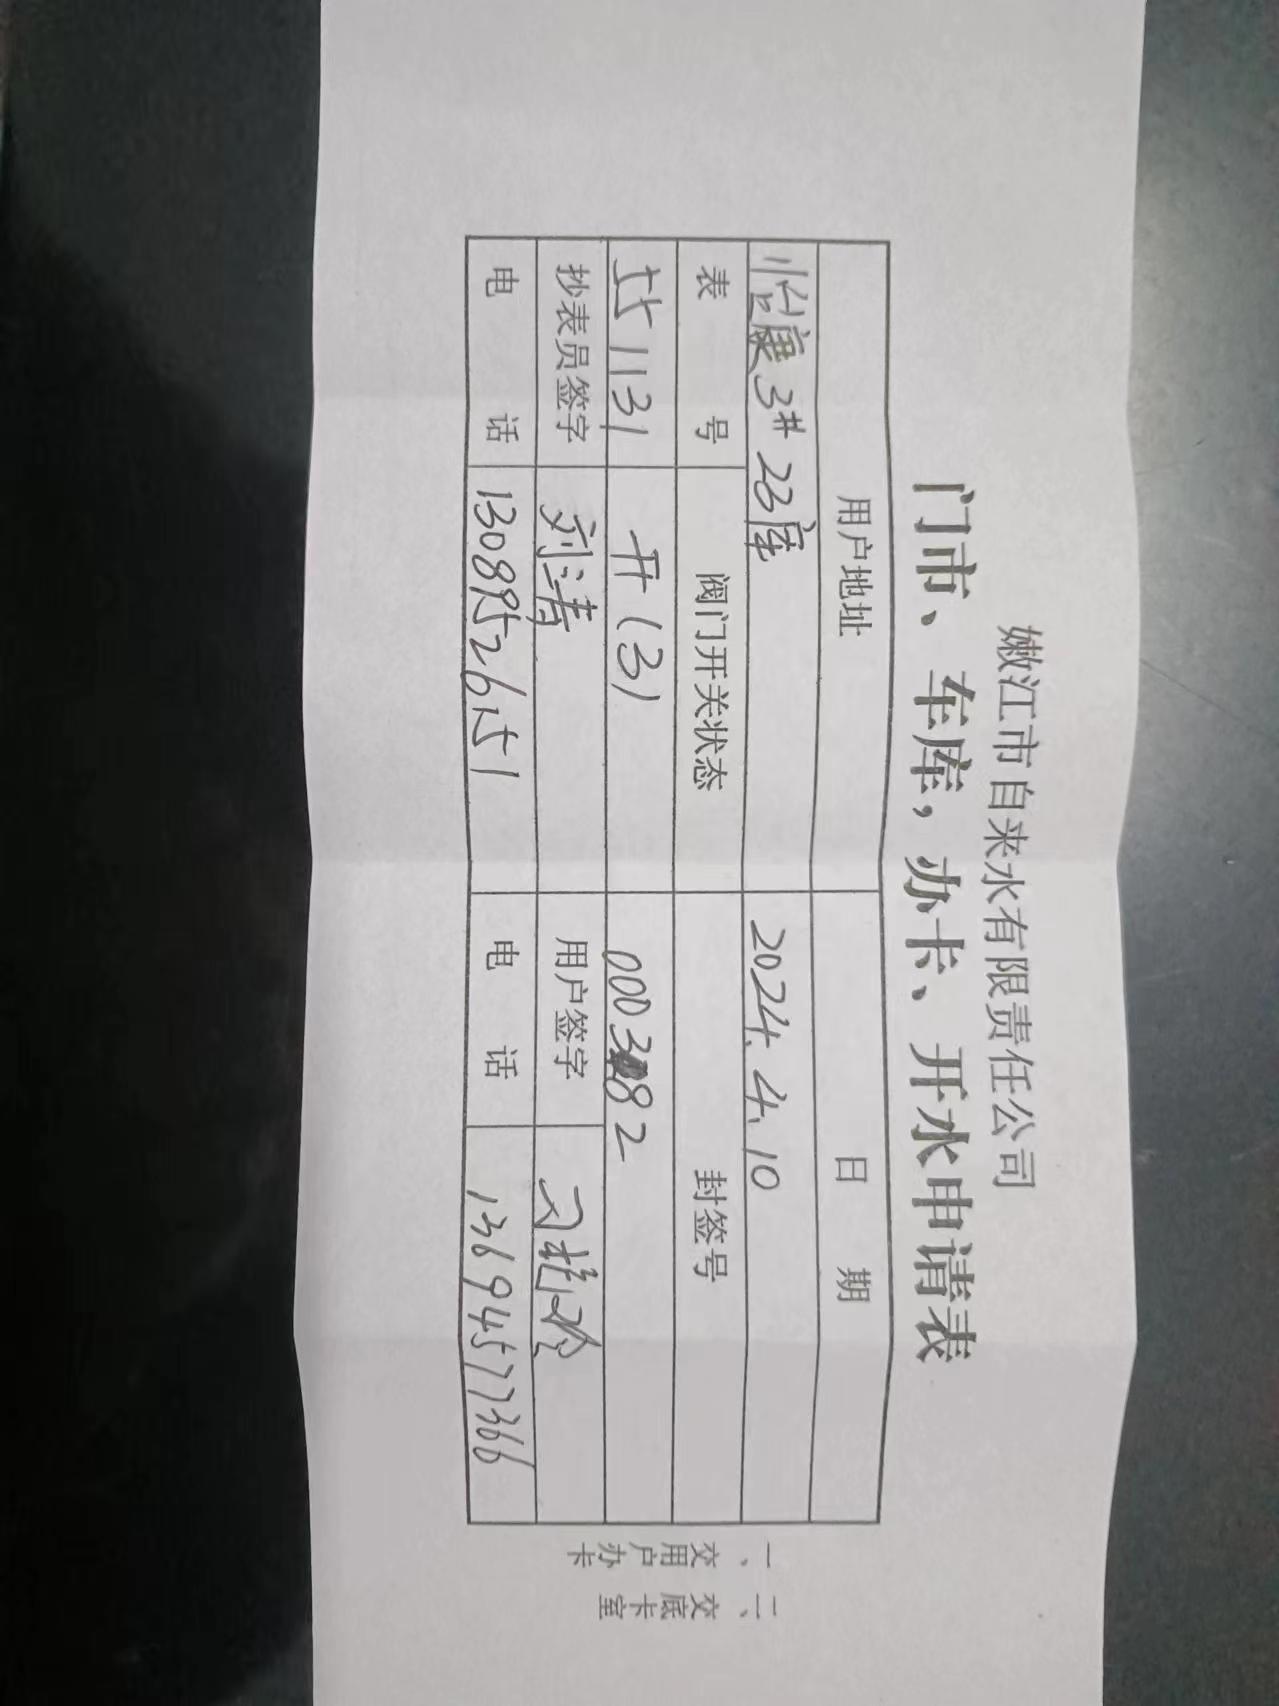 嫩江市自来水有限责任公司
门市、车库，办卡、开水申请表
用户地址 日 期
怡康3# 23库 2024.4.10
表 号 阀门开关状态 封签号
551131 开(3) 000382
抄表员签字 刘涛 用户签字
电 话 13089526151 电 话 13694577366
一、交用户办卡
二、交底卡室